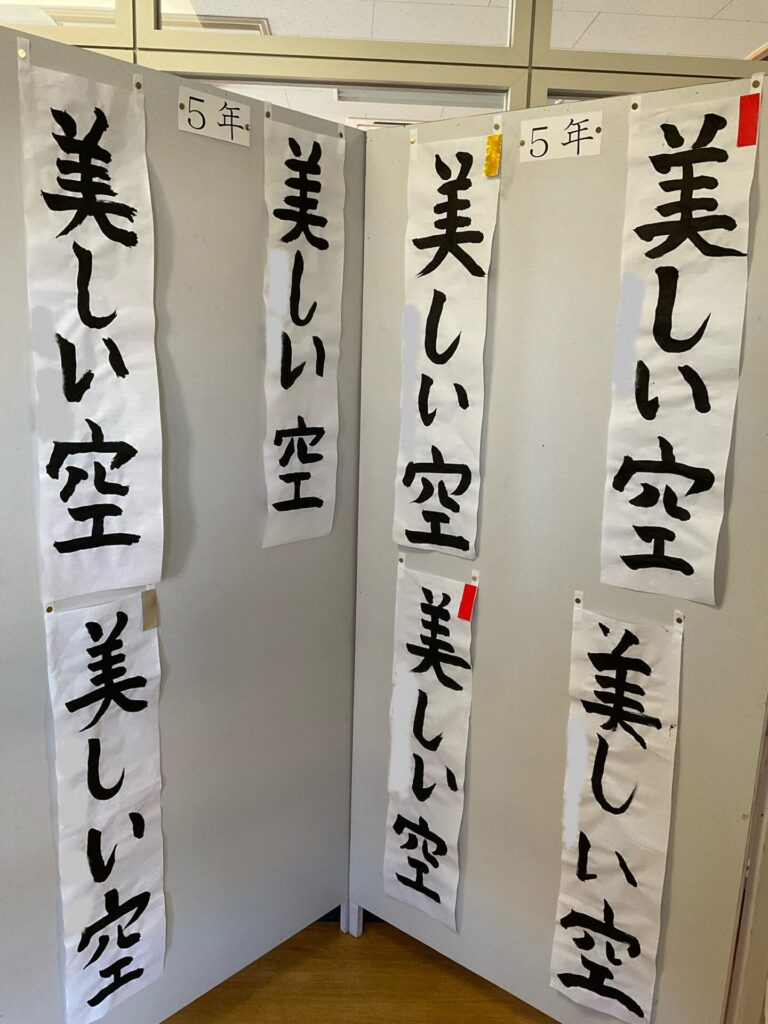 5年
5年
美しい空
美しい空
美しい空
美しい空
美しい空
美しい空
美しい空